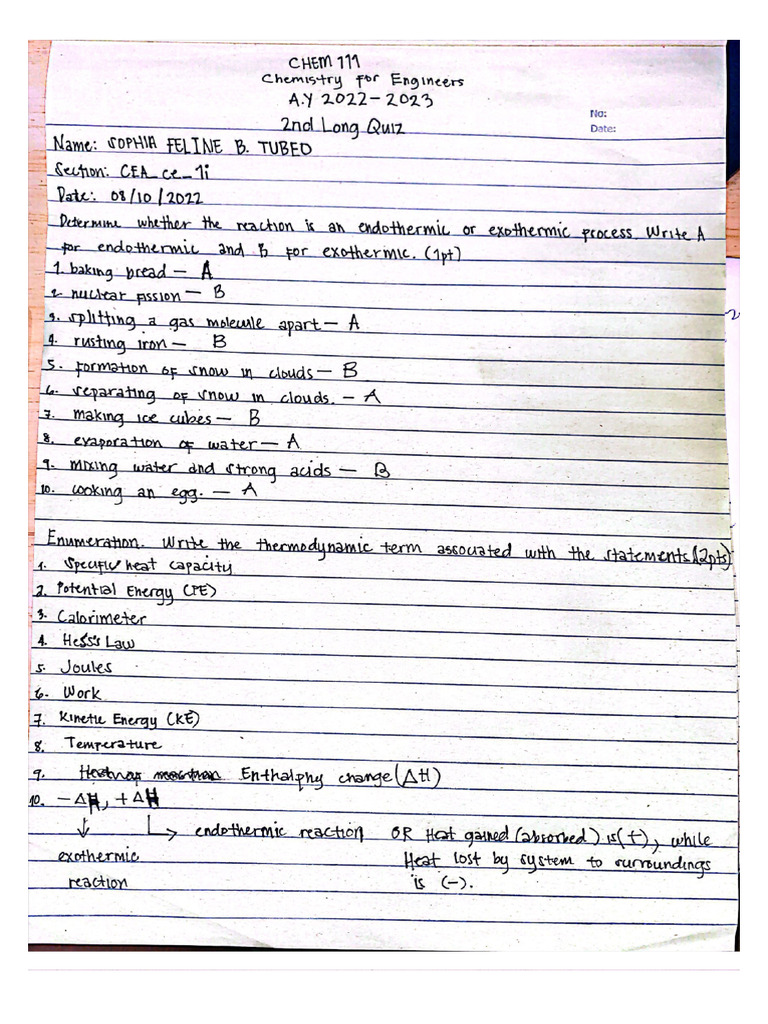 CHEM 111
Chemistry for Engineers
A.Y 2022-2023
2nd Long Quiz
No:
Date:
Name: SOPHIA FELINE B. TUBEO
Section: CEA_ce_1i
Date: 08/10/2022
Determine whether the reaction is an endothermic or exothermic process. Write A
for endothermic and B for exothermic. (1pt)
1. baking bread - A
2. nuclear fission - B
3. splitting a gas molecule apart - A
4. rusting iron - B
5. formation of snow in clouds - B
6. separating of snow in clouds. - A
7. making ice cubes - B
8. evaporation of water - A
9. mixing water and strong acids - B
10. cooking an egg. - A
Enumeration. Write the thermodynamic term associated with the statements (2pts)
1. Specific heat capacity
2. Potential Energy (PE)
3. Calorimeter
4. Hess's Law
5. Joules
6. Work
7. Kinetic Energy (KE)
8. Temperature
9. Enthalphy change (ΔH)
10. -ΔH, +ΔH
↓ ↳ endothermic reaction OR Heat gained (absorbed) is (+), while
exothermic Heat lost by system to surroundings
reaction is (-).